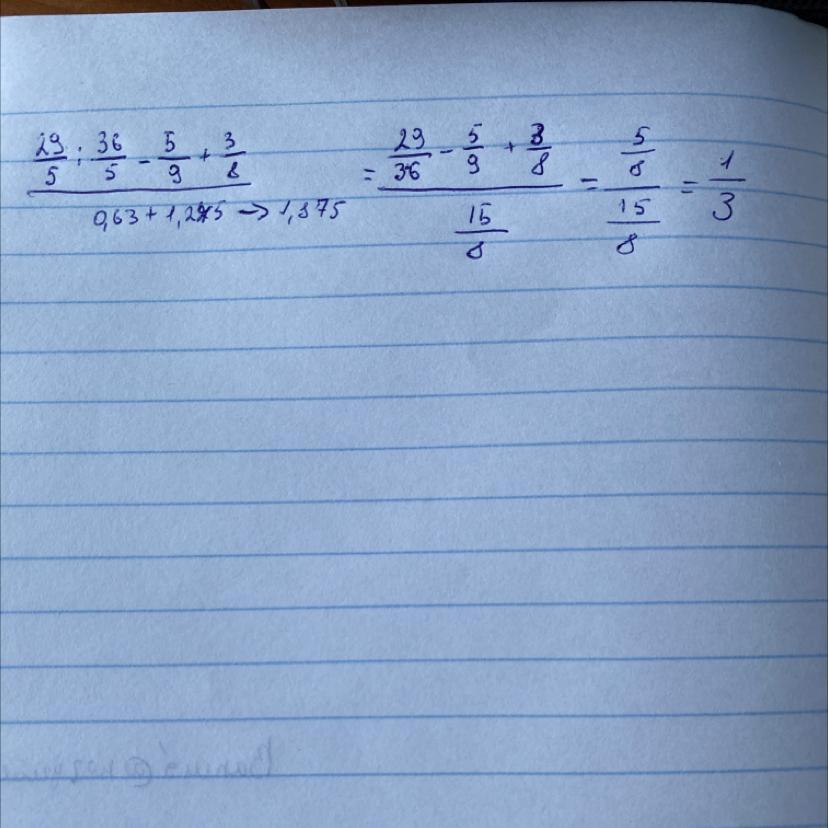 29/5 : 36/5 - 5/9 + 3/8 / 0,63 + 1,245 → 1,875 = 29/36 - 5/9 + 3/8 / 15/8 = 5/8 / 15/8 = 1/3